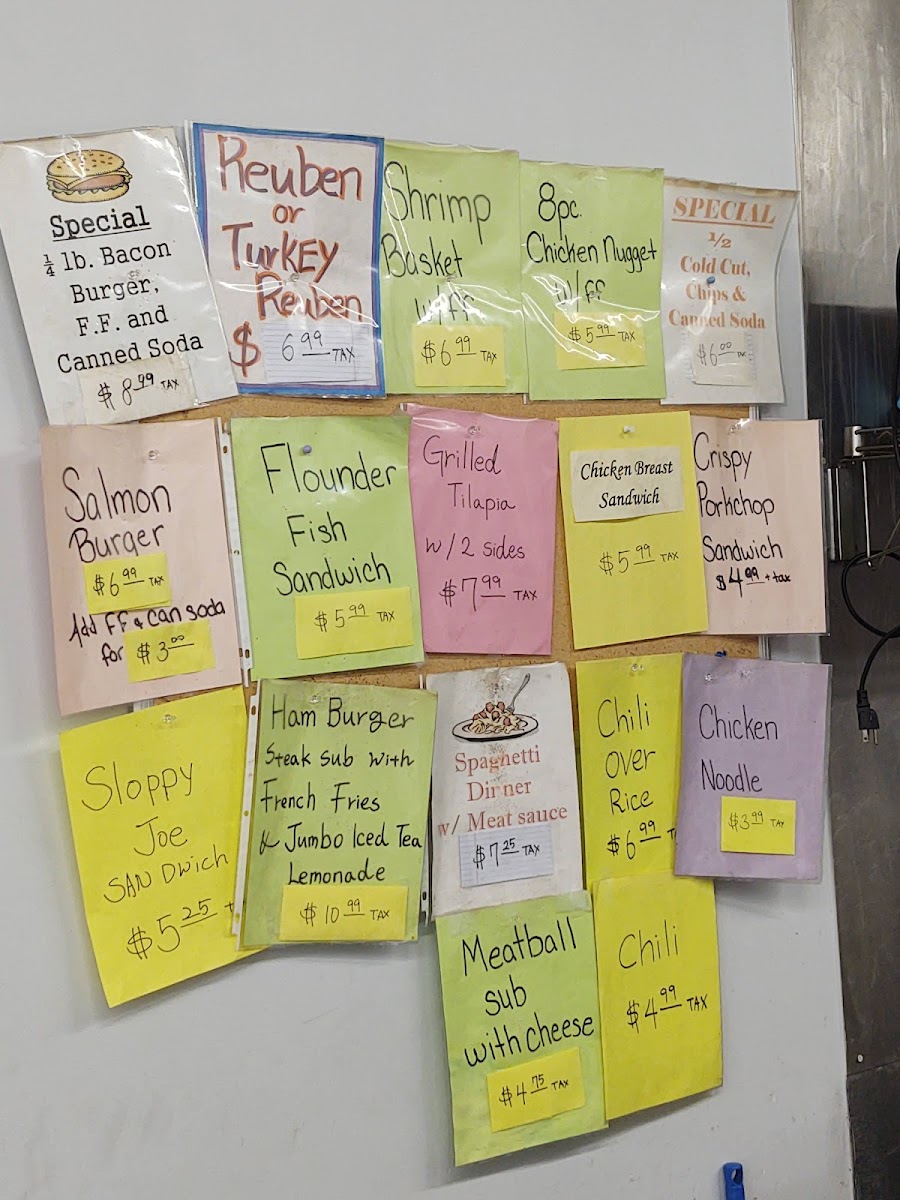 Special
¼ lb. Bacon
Burger,
F.F. and
Canned Soda
$ 8.99 TAX
Reuben
or
TurKEY
Reuben
$ 6.99 TAX
Shrimp
Basket
w/ff
$6.99 TAX
8pc.
Chicken Nugget
w/ff
$5.99 TAX
SPECIAL
½
Cold Cut,
Chips &
Canned Soda
$6.00 TAX
Salmon
Burger
$6.99 TAX
Add FF & can soda
for $3.00
Flounder
Fish
Sandwich
$5.99 TAX
Grilled
Tilapia
w/2 sides
$7.99 TAX
Chicken Breast
Sandwich
$5.99 TAX
Crispy
Porkchop
Sandwich
$4.99 + tax
Sloppy
Joe
SANDwich
$5.25 +
Ham Burger
Steak sub with
French Fries
& Jumbo Iced Tea
Lemonade
$10.99 TAX
Spaghetti
Dinner
w/ Meat sauce
$7.25 TAX
Chili
Over
Rice
$6.99 T
Chicken
Noodle
$3.99 TAX
Meatball
sub
with cheese
$4.75 TAX
Chili
$4.99 TAX